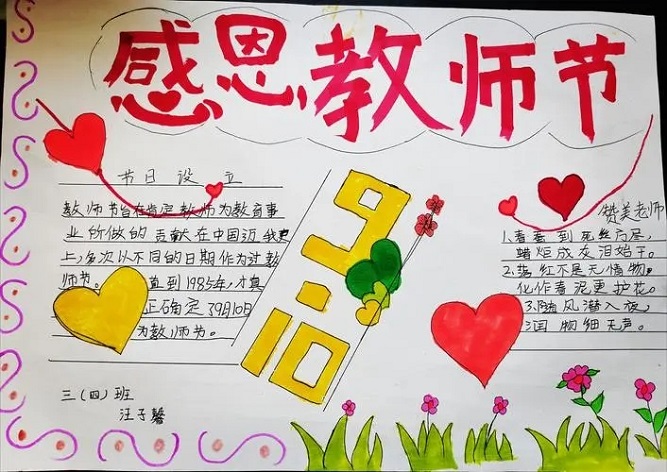 感恩教师节
节日设立
教师节旨在肯定教师为教育事
业所做的贡献在中国近
上,多次以不同的日期作为过教
师节。直到1985年,才真
正确定了9月10日
为教师节。
三(四)班
汪子馨
9.10
赞美老师
1.春蚕到死丝方尽,
蜡炬成灰泪始干。
2.落红不是无情物,
化作春泥更护花。
3.随风潜入夜,
润物细无声。